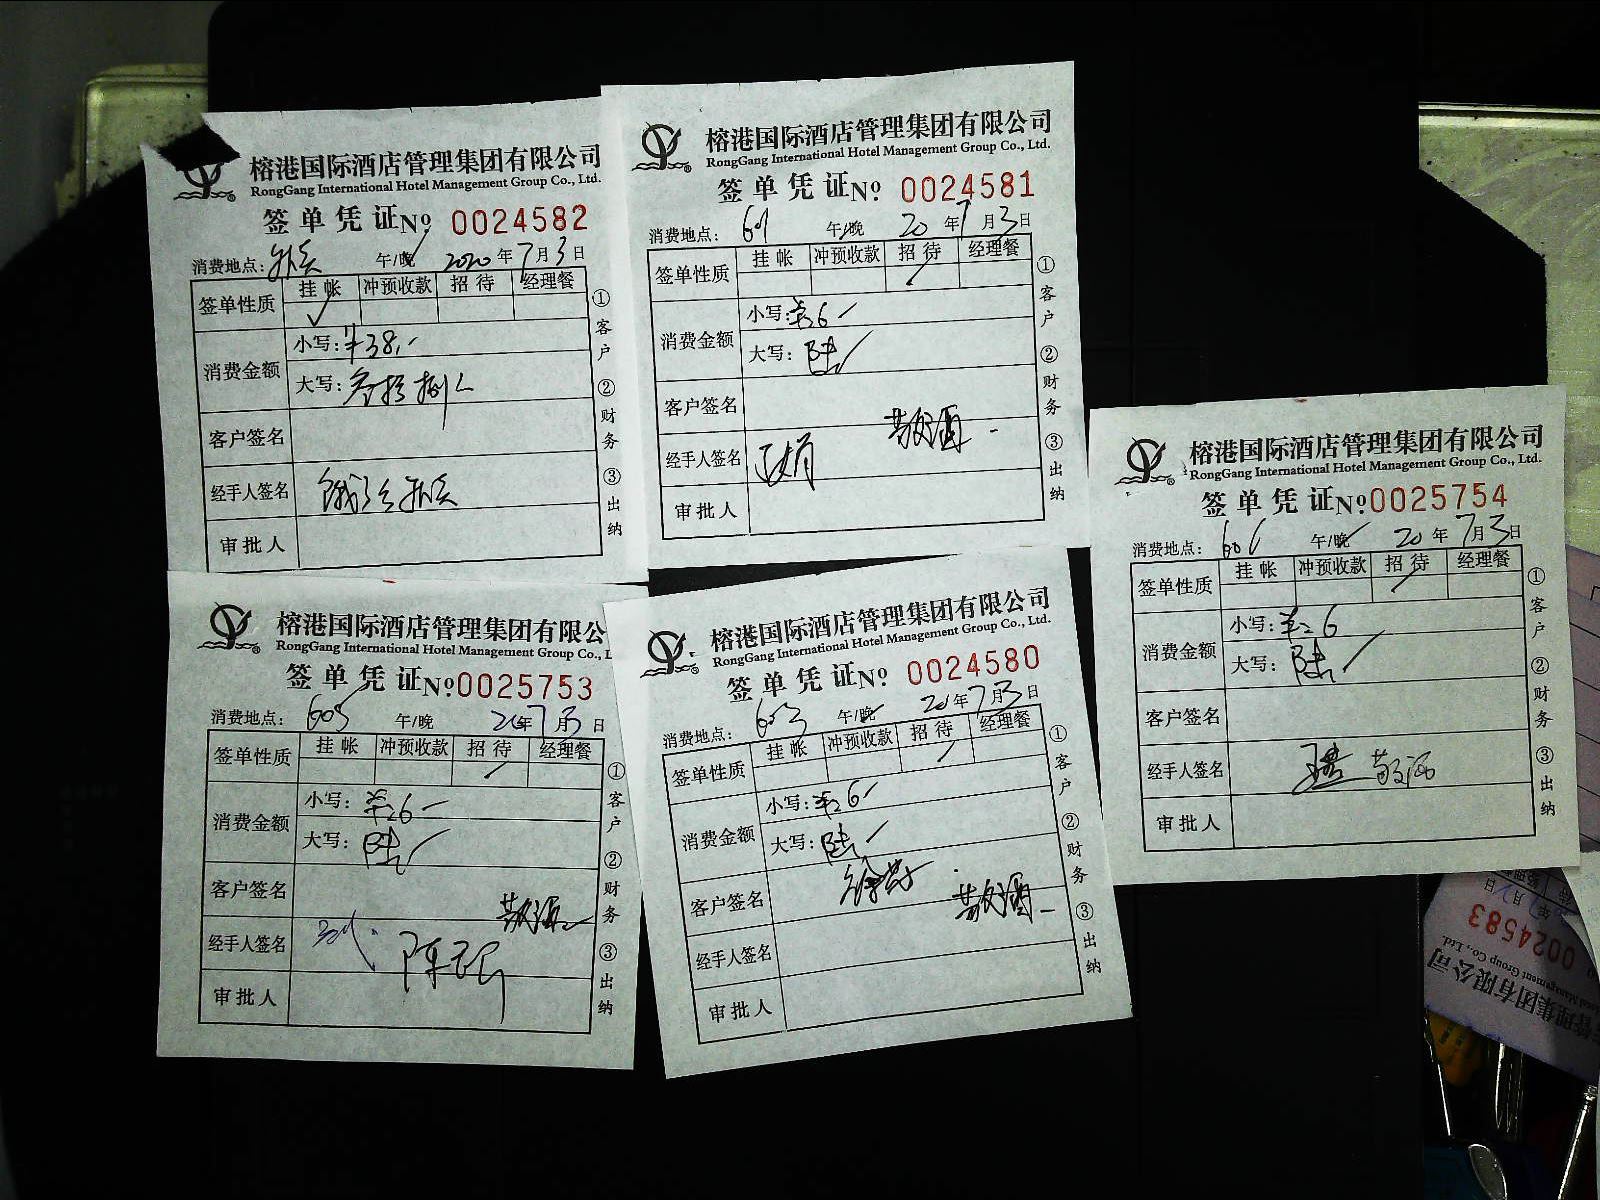 榕港国际酒店管理集团有限公司
RongGang International Hotel Management Group Co., Ltd.
签单凭证No 0024582
消费地点: 午/晚 2020年7月3日
签单性质 挂帐 冲预收款 招待 经理餐
消费金额
小写:¥38.-
大写:叁拾捌
客户签名
经手人签名
审批人
①客户 ②财务 ③出纳
榕港国际酒店管理集团有限公司
RongGang International Hotel Management Group Co., Ltd.
签单凭证No 0024581
消费地点: 午/晚 20年7月3日
签单性质 挂帐 冲预收款 招待 经理餐
消费金额
小写: 6
大写:陆
客户签名
敬酒
经手人签名
审批人
①客户 ②财务 ③出纳
榕港国际酒店管理集团有限公司
RongGang International Hotel Management Group Co., Ltd.
签单凭证No 0025754
消费地点: 午/晚 20年7月3日
签单性质 挂帐 冲预收款 招待 经理餐
消费金额
小写: 6
大写:陆
客户签名
经手人签名 敬酒
审批人
①客户 ②财务 ③出纳
榕港国际酒店管理集团有限公
RongGang International Hotel Management Group Co., L
签单凭证No 0025753
消费地点: 605 午/晚 20年7月3日
签单性质 挂帐 冲预收款 招待 经理餐
消费金额
小写: 6
大写:陆
客户签名
敬酒
经手人签名
审批人
①客户 ②财务 ③出纳
榕港国际酒店管理集团有限公司
RongGang International Hotel Management Group Co., Ltd.
签单凭证No 0024580
消费地点: 603 午/晚 20年7月3日
签单性质 挂帐 冲预收款 招待 经理餐
消费金额
小写: 6
大写:陆
客户签名
敬酒
经手人签名
审批人
①客户 ②财务 ③出纳
管理集团有限公司
Management Group Co., Ltd.
0024583